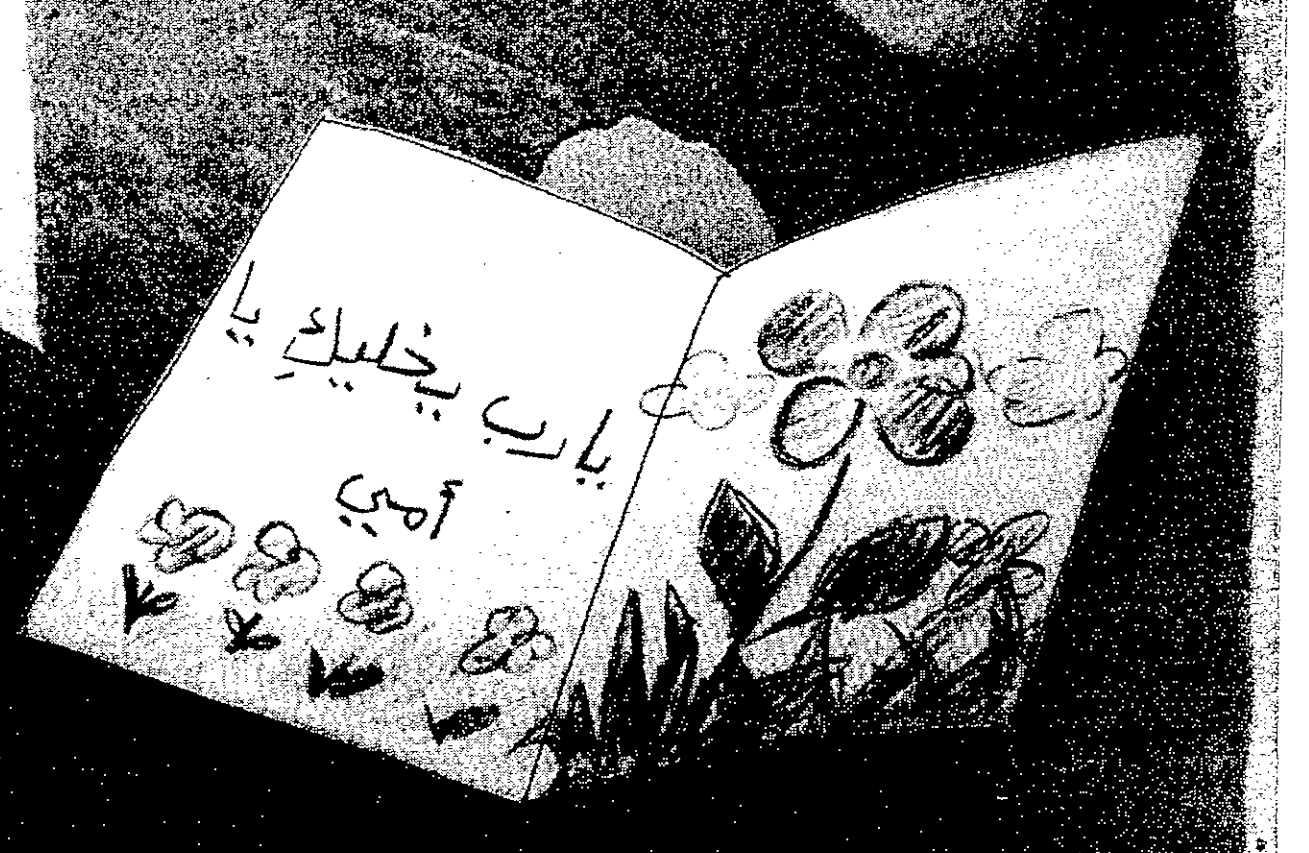 يارب يخليكِ يا
أمي